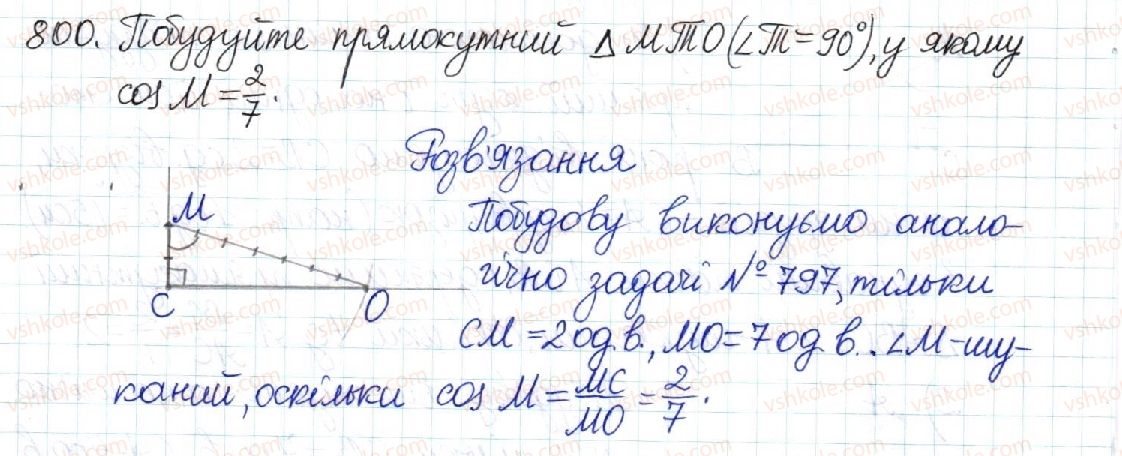 800. Побудуйте прямокутний Δ МТО (∠Т = 90°), у якому
cos M = 2/7.
Розв'язання
М
С
О
Побудову виконуємо анало-
гічно задачі № 797, тільки
СМ = 2 од. в., МО = 7 од. в. ∠М - шу-
каний, оскільки cos M = МС/МО = 2/7.